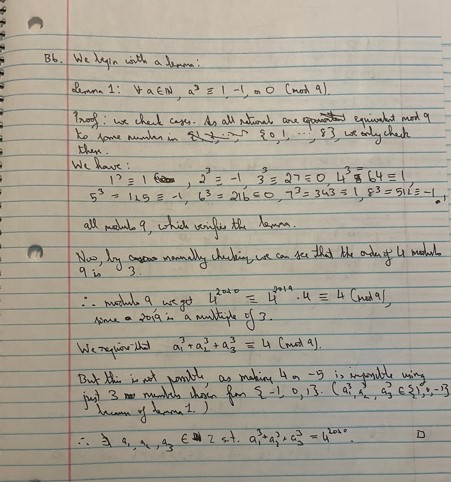 B6. We begin with a lemma:
Lemma 1: ∀ a ∈ ℕ, a³ ≡ 1, -1, or 0 (mod 9).
Proof: we check cases. As all are equivalent mod 9
to some number in {0, 1, ..., 8}, we only check
them.
We have:
1³ ≡ 1, 2³ ≡ -1, 3³ ≡ 27 ≡ 0, 4³ ≡ 64 ≡ 1,
5³ ≡ 125 ≡ -1, 6³ ≡ 216 ≡ 0, 7³ ≡ 343 ≡ 1, 8³ ≡ 512 ≡ -1,
all modulo 9, which verifies the lemma.
Now, by manually checking we can see that the order of 4 modulo
9 is 3.
∴ modulo 9 we get 4²⁰²⁰ ≡ 4²⁰¹⁹ · 4 ≡ 4 (mod 9),
since 2019 is a multiple of 3.
We require that a₁³ + a₂³ + a₃³ ≡ 4 (mod 9).
But this is not possible, as making 4 or -5 is impossible using
just 3 numbers chosen from {-1, 0, 1}. (a₁³, a₂³, a₃³ ∈ {1, 0, -1}
because of lemma 1.)
∴ ∄ a₁, a₂, a₃ ∈ ℤ s.t. a₁³ + a₂³ + a₃³ = 4²⁰²⁰ □